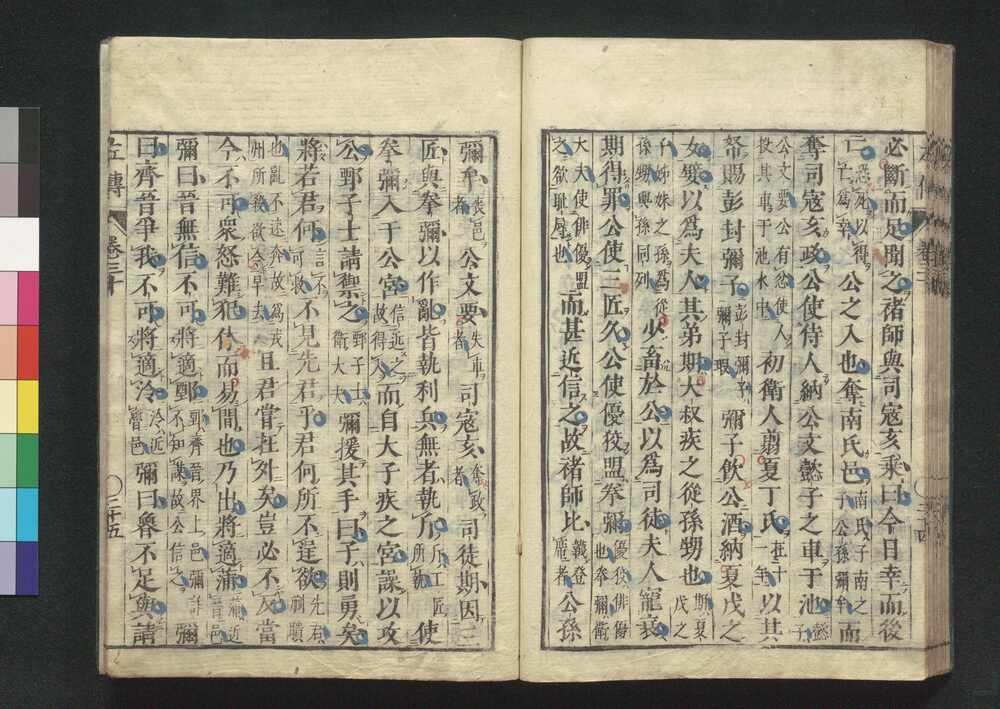 必斷而足聞之褚師與司寇亥乘曰今日幸而後
亡恐死以得亡爲幸公之入也奪南氏邑南氏子南之子公孫彌牟而
奪司寇亥政公使侍人納公文懿子之車于池懿子
公文要公有忿使人投其車于池水中初衛人翦夏丁氏在十一年以其
帑賜彭封彌子彭封彌子彌子瑕彌子飲公酒納夏戊之
女嬖以爲夫人其弟期大叔疾之從孫甥也期夏戊之
子姊妹之孫爲從孫甥與孫同列少畜於公以爲司徒夫人寵衰
期得罪公使三匠久公使優狡盟拳彌優狡俳優也拳彌衛
大夫使俳優盟之欲耻辱也而甚近信之故褚師比韤登者公孫
彌牟喪邑者公文要失車者司寇亥奪政者司徒期因三
匠與拳彌以作亂皆執利兵無者執斤斤工匠所執使
拳彌入于公宮信近之故得入而自大子疾之宮譟以攻
公鄄子士請禦之鄄子士衛大夫彌援其手曰子則勇矣
將若君何言不可救不見先君乎君何所不逞欲先君蒯聵
也亂不速奔故爲戎州所殺欲令早去且君嘗在外矣豈必不反當
今不可衆怒難犯休而易間也乃出將適蒲蒲近晉邑
彌曰晉無信不可將適鄄鄄齊晉界上邑彌詐不知謀故公信之彌
曰齊晉爭我不可將適泠泠近魯邑彌曰魯不足與請
左傳
卷三十
三十五